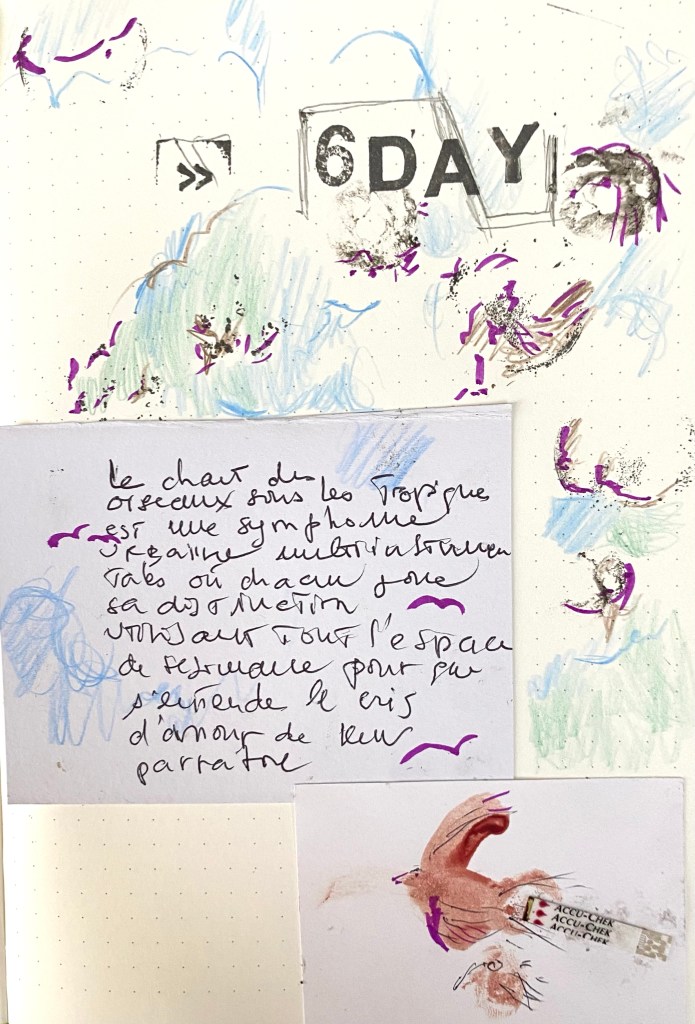 »
6 D'AY
Le chant des
oiseaux sous les Tropiques
est une symphonie
urbaine multiinstrumen
tales où chacun joue
sa distinction
utilisant tout l'espace
de résonance pour que
s'entende le cris
d'amour de leur
ACCU-CHEK
ACCU-CHEK
ACCU-CHEK